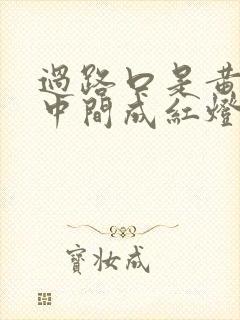 過路口是黃
中間成紅燈
寳妝成